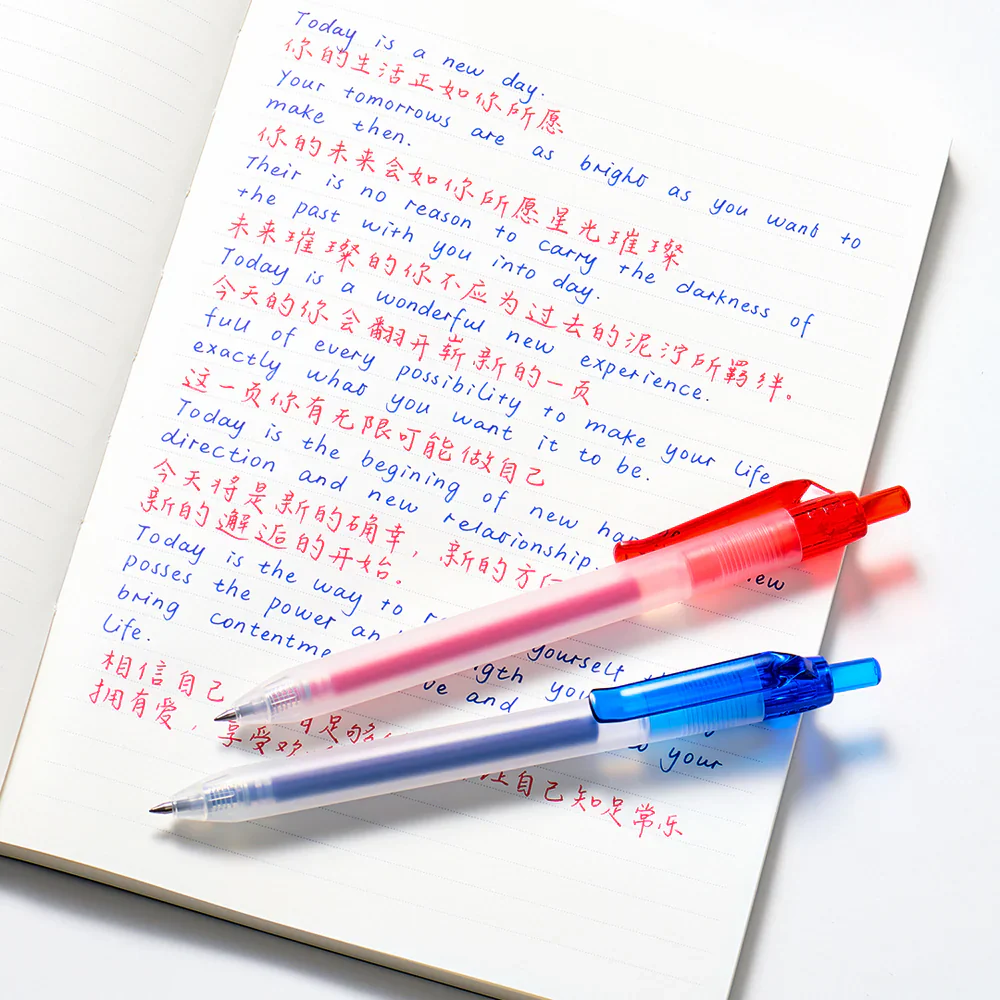 Today is a new day.
你的生活正如你所愿
Your tomorrows are as bright as you want to
make then.
你的未来会如你所愿星光璀璨
Their is no reason to carry the darkness of
the past with you into day.
未来璀璨的你不应为过去的泥泞所羁绊。
Today is a wonderful new experience.
今天的你会翻开崭新的一页
full of every possibility to make your life
exactly what you want it to be.
这一页你有无限可能做自己
Today is the begining of new
direction and new relationship. ew
今天将是新的确幸，新的方
新的邂逅的开始.
Today is the way to yourself
posses the power an gth you
bring contentme and
life. your
相信自己 足够
拥有爱，享受欢 自己知足常乐